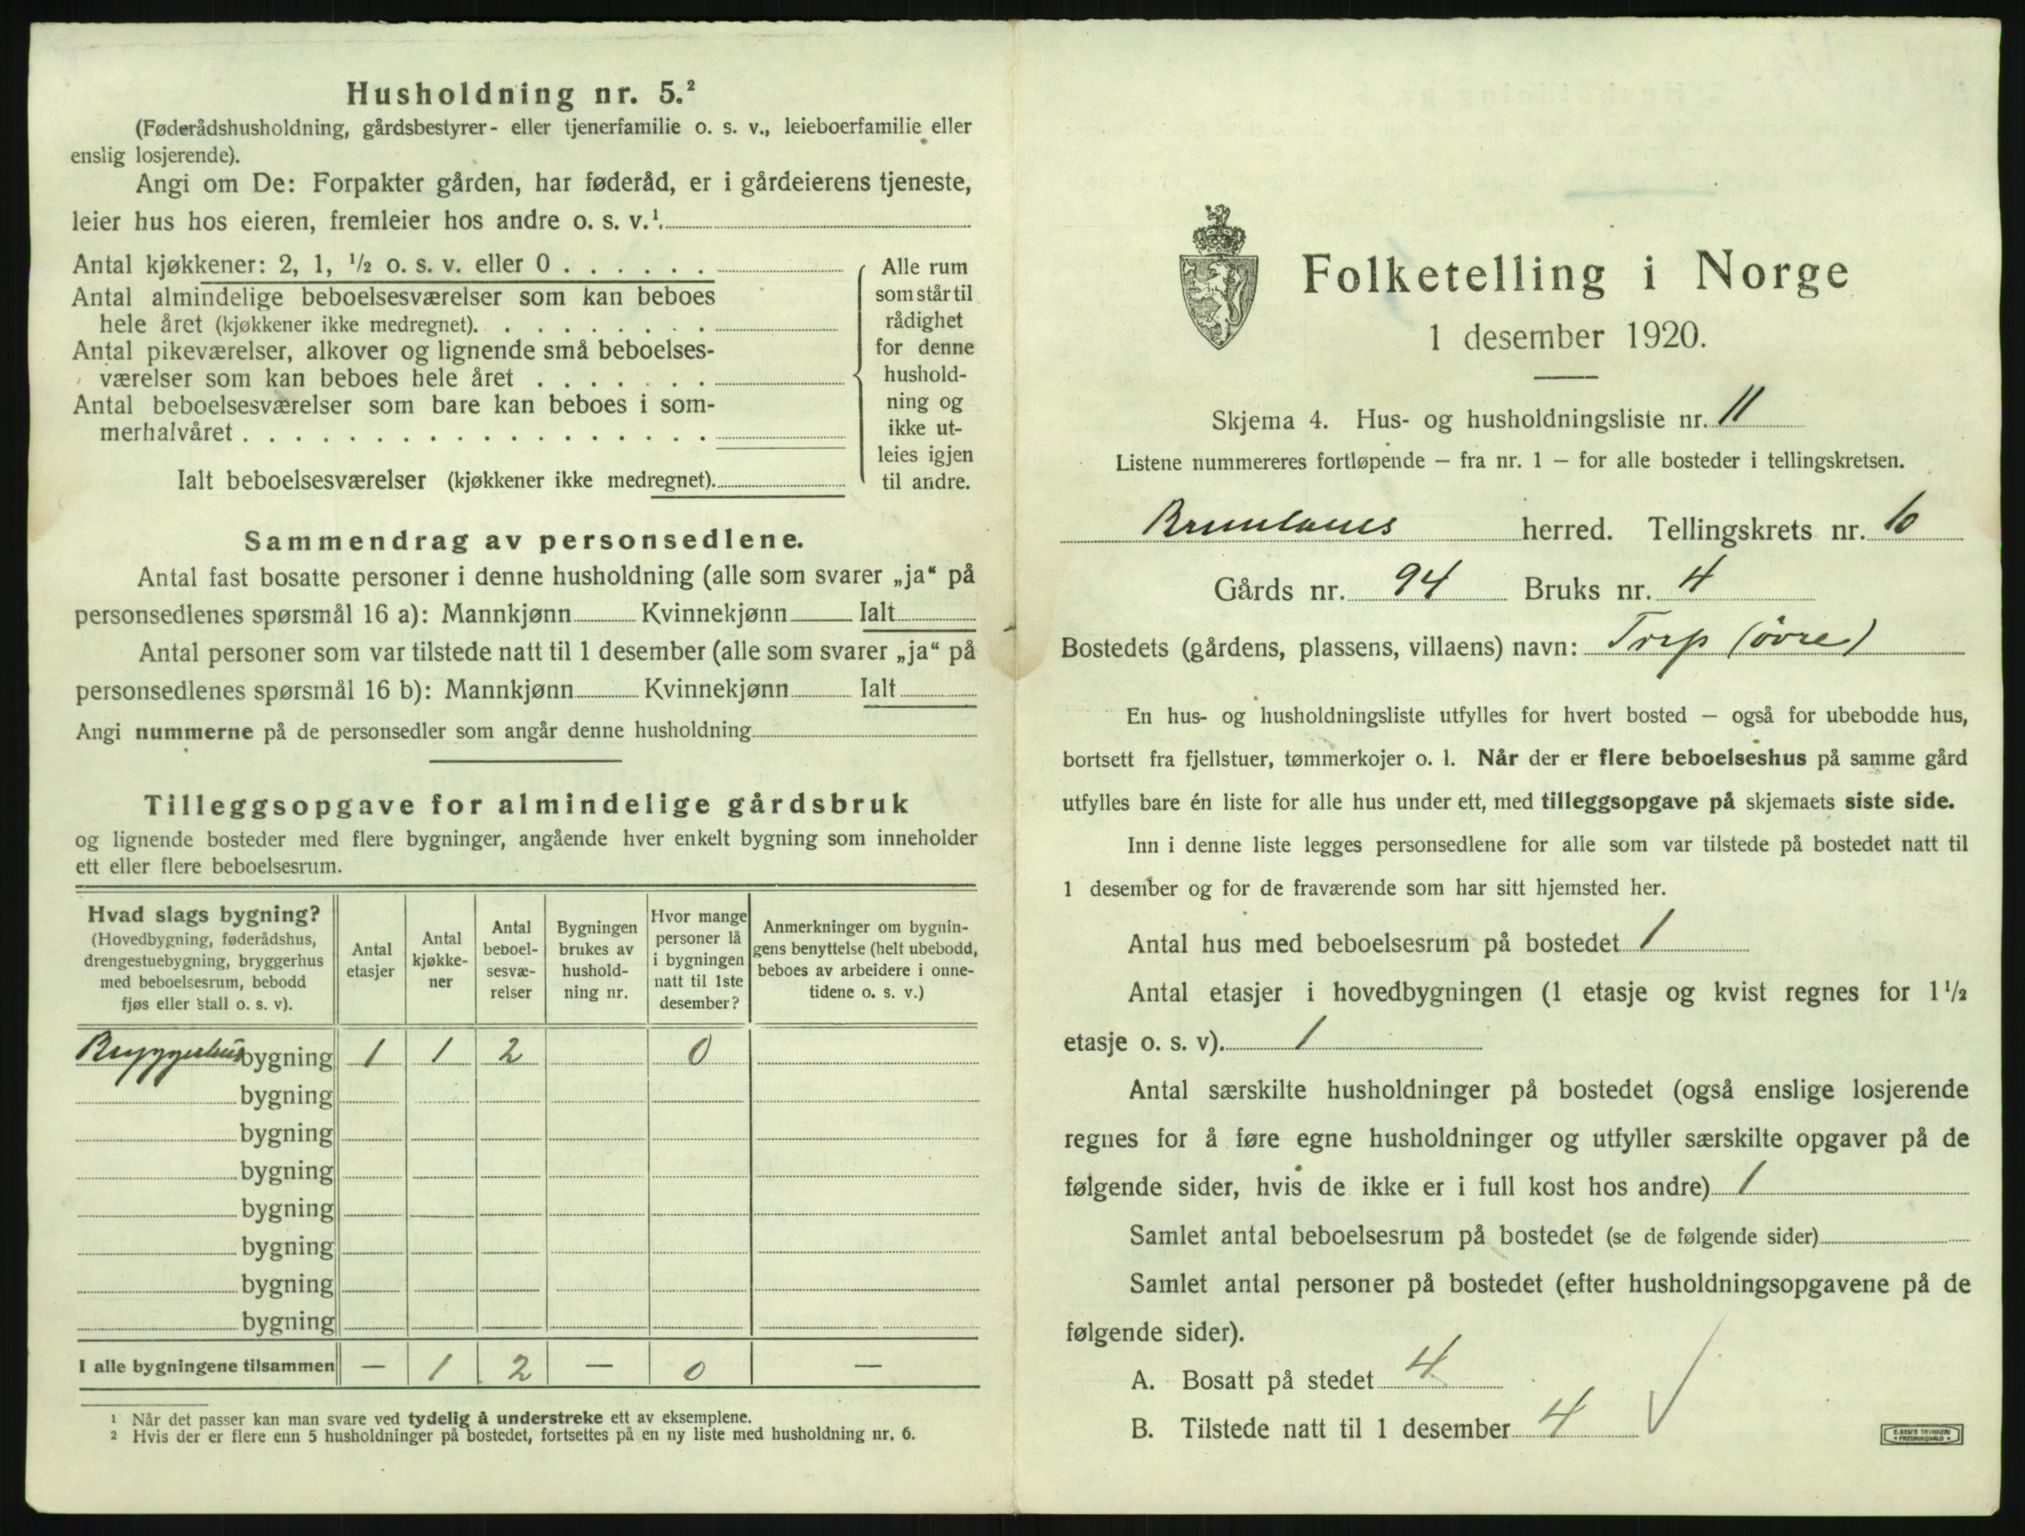 Husholdning nr. 5.²
(Føderådshusholdning, gårdsbestyrer- eller tjenerfamilie o. s. v., leieboerfamilie eller
enslig losjerende).
Angi om De: Forpakter gården, har føderåd, er i gårdeierens tjeneste,
leier hus hos eieren, fremleier hos andre o. s. v.¹.
Antal kjøkkener: 2, 1, ½ o. s. v. eller 0 . . . . . .
Antal almindelige beboelsesværelser som kan beboes
hele året (kjøkkener ikke medregnet). . . . . . . . .
Antal pikeværelser, alkover og lignende små beboelses-
værelser som kan beboes hele året . . . . . . .
Antal beboelsesværelser som bare kan beboes i som-
merhalvåret . . . . . . . . . . . . . . . . . .
Ialt beboelsesværelser (kjøkkener ikke medregnet).
Alle rum
som står til
rådighet
for denne
hushold-
ning og
ikke ut-
leies igjen
til andre.
Sammendrag av personsedlene.
Antal fast bosatte personer i denne husholdning (alle som svarer „ja“ på
personsedlenes spørsmål 16 a): Mannkjønn Kvinnekjønn Ialt
Antal personer som var tilstede natt til 1 desember (alle som svarer „ja“ på
personsedlenes spørsmål 16 b): Mannkjønn Kvinnekjønn Ialt
Angi nummerne på de personsedler som angår denne husholdning
Tilleggsopgave for almindelige gårdsbruk
og lignende bosteder med flere bygninger, angående hver enkelt bygning som inneholder
ett eller flere beboelsesrum.
Hvad slags bygning?
(Hovedbygning, føderådshus,
drengestuebygning, bryggerhus
med beboelsesrum, bebodd
fjøs eller stall o. s. v).
Antal
etasjer
Antal
kjøkke-
ner
Antal
beboel-
sesvæ-
relser
Bygningen
brukes av
hushold-
ning nr.
Hvor mange
personer lå
i bygningen
natt til 1ste
desember?
Anmerkninger om bygnin-
gens benyttelse (helt ubebodd,
beboes av arbeidere i onne-
tidene o. s. v.)
Bryggerhus bygning 1 1 2 0
bygning
bygning
bygning
bygning
bygning
bygning
bygning
I alle bygningene tilsammen — 1 2 — 0 —
¹ Når det passer kan man svare ved tydelig å understreke ett av eksemplene.
² Hvis der er flere enn 5 husholdninger på bostedet, fortsettes på en ny liste med husholdning nr. 6.
Folketelling i Norge
1 desember 1920.
Skjema 4. Hus- og husholdningsliste nr. 11
Listene nummereres fortløpende — fra nr. 1 — for alle bosteder i tellingskretsen.
Brunlanes herred. Tellingskrets nr. 10
Gårds nr. 94 Bruks nr. 4
Bostedets (gårdens, plassens, villaens) navn: Torp (øvre)
En hus- og husholdningsliste utfylles for hvert bosted — også for ubebodde hus,
bortsett fra fjellstuer, tømmerkojer o. l. Når der er flere beboelseshus på samme gård
utfylles bare én liste for alle hus under ett, med tilleggsopgave på skjemaets siste side.
Inn i denne liste legges personsedlene for alle som var tilstede på bostedet natt til
1 desember og for de fraværende som har sitt hjemsted her.
Antal hus med beboelsesrum på bostedet 1
Antal etasjer i hovedbygningen (1 etasje og kvist regnes for 1½
etasje o. s. v). 1
Antal særskilte husholdninger på bostedet (også enslige losjerende
regnes for å føre egne husholdninger og utfyller særskilte opgaver på de
følgende sider, hvis de ikke er i full kost hos andre) 1
Samlet antal beboelsesrum på bostedet (se de følgende sider)
Samlet antal personer på bostedet (efter husholdningsopgavene på de
følgende sider).
A. Bosatt på stedet 4
B. Tilstede natt til 1 desember 4